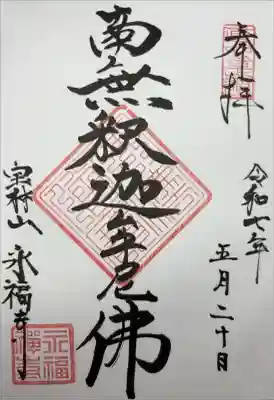 奉拝
令和七年
五月二十日
南無釈迦牟尼佛
林山 永福寺
永福
禅寺